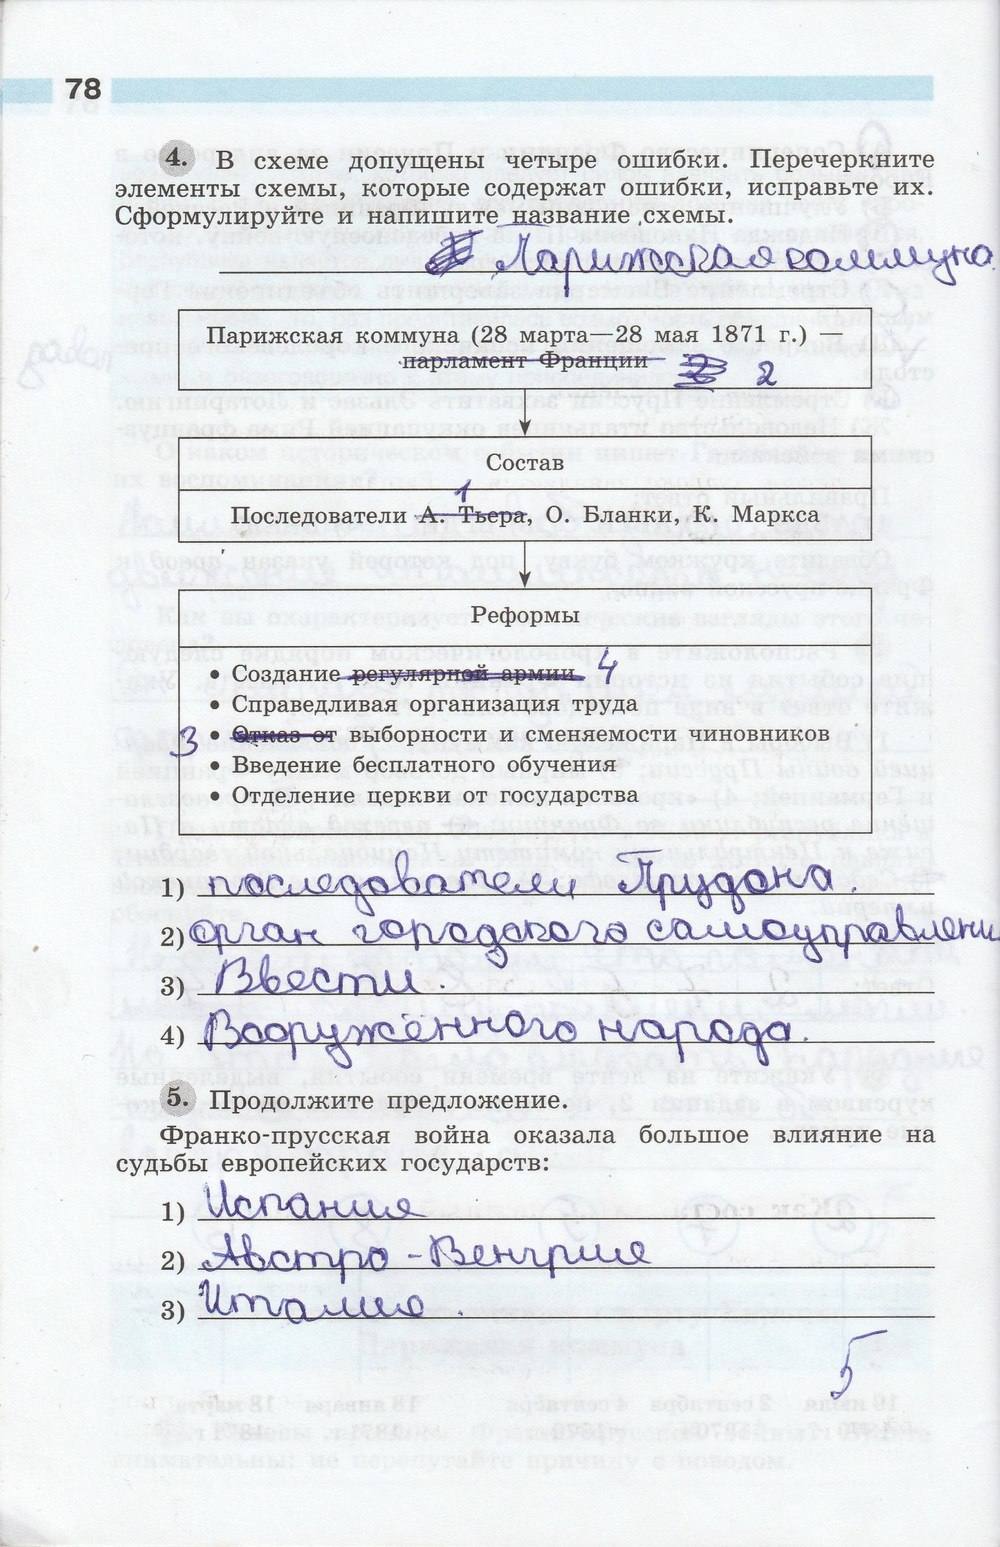 78
4. В схеме допущены четыре ошибки. Перечеркните
элементы схемы, которые содержат ошибки, исправьте их.
Сформулируйте и напишите название схемы.
Парижская коммуна
Парижская коммуна (28 марта—28 мая 1871 г.)
парламент Франции 2
Состав
1
Последователи А. Тьера, О. Бланки, К. Маркса
Реформы
• Создание регулярной армии 4
• Справедливая организация труда
3 • Отказ от выборности и сменяемости чиновников
• Введение бесплатного обучения
• Отделение церкви от государства
1) последователи Прудона.
2) орган городского самоуправлени
3) Ввести.
4) Вооружённого народа.
5. Продолжите предложение.
Франко-прусская война оказала большое влияние на
судьбы европейских государств:
1) Испания
2) Австро-Венгрие
3) Италие.
5